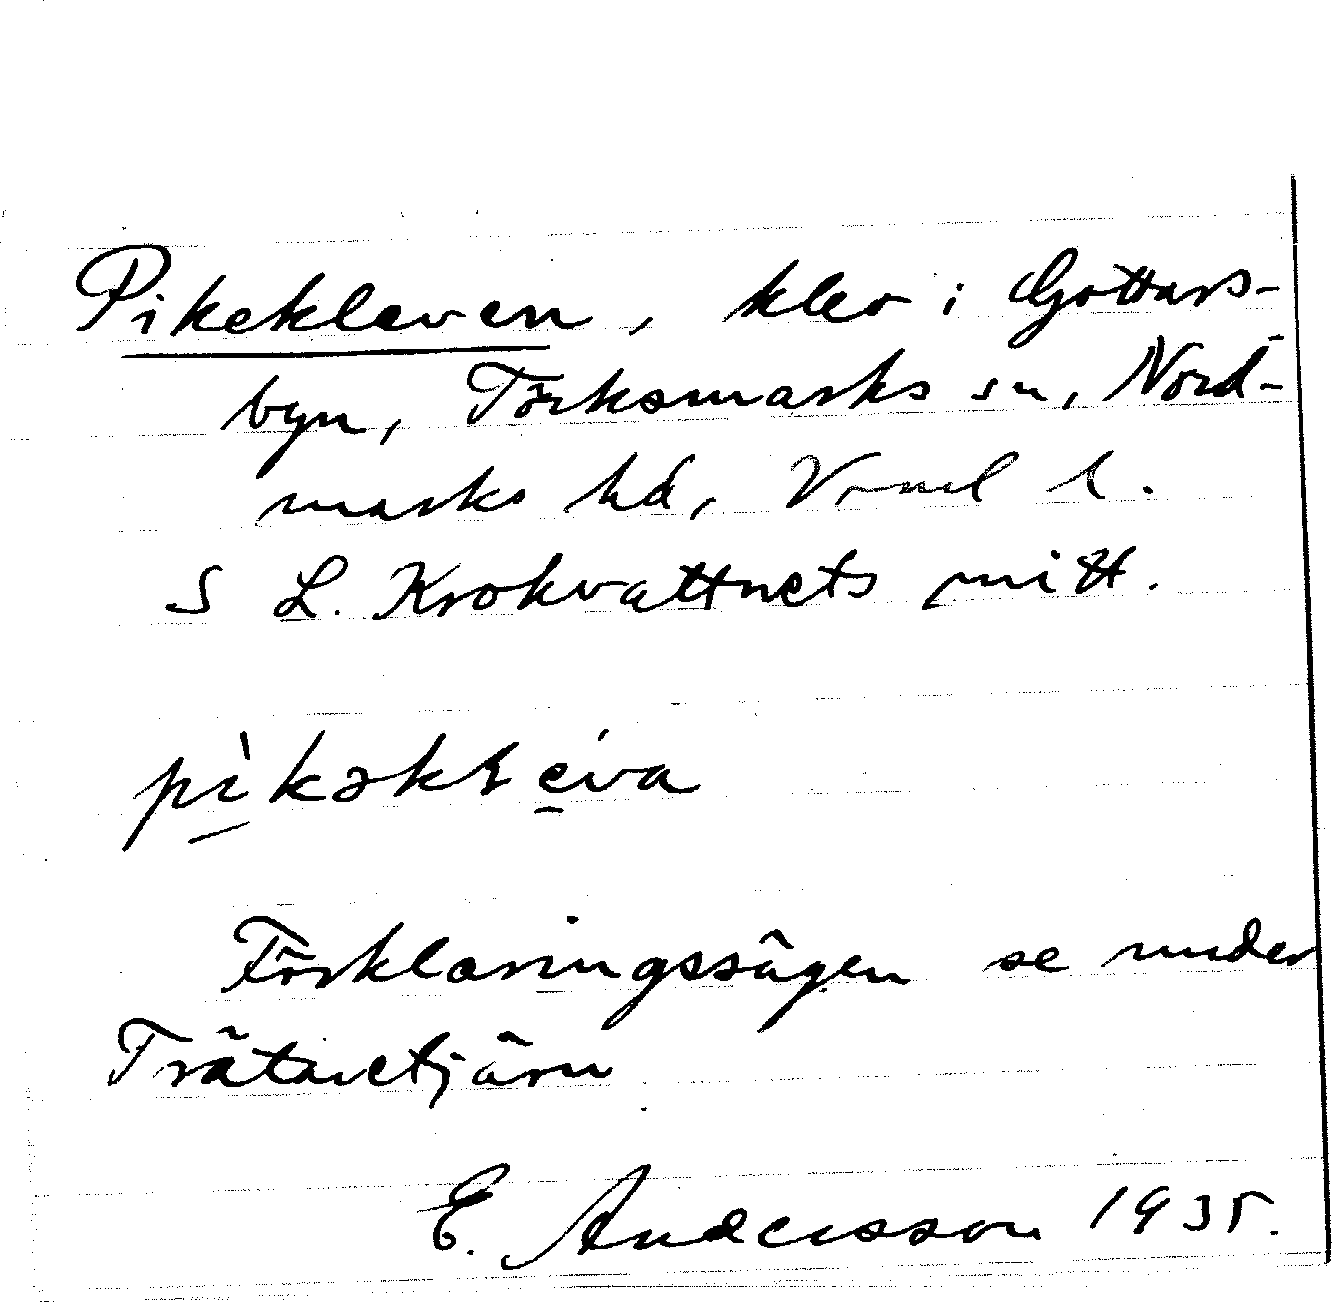 Pikekleven, klev i Gottars-
byn, Töcksmarks sn, Nord-
marks hd, Vrml l.
S L. Krokvattnets mitt.
pìkəkɽéva
Förklaringssägen se under
Trätavetjärn
E. Andersson 1935.